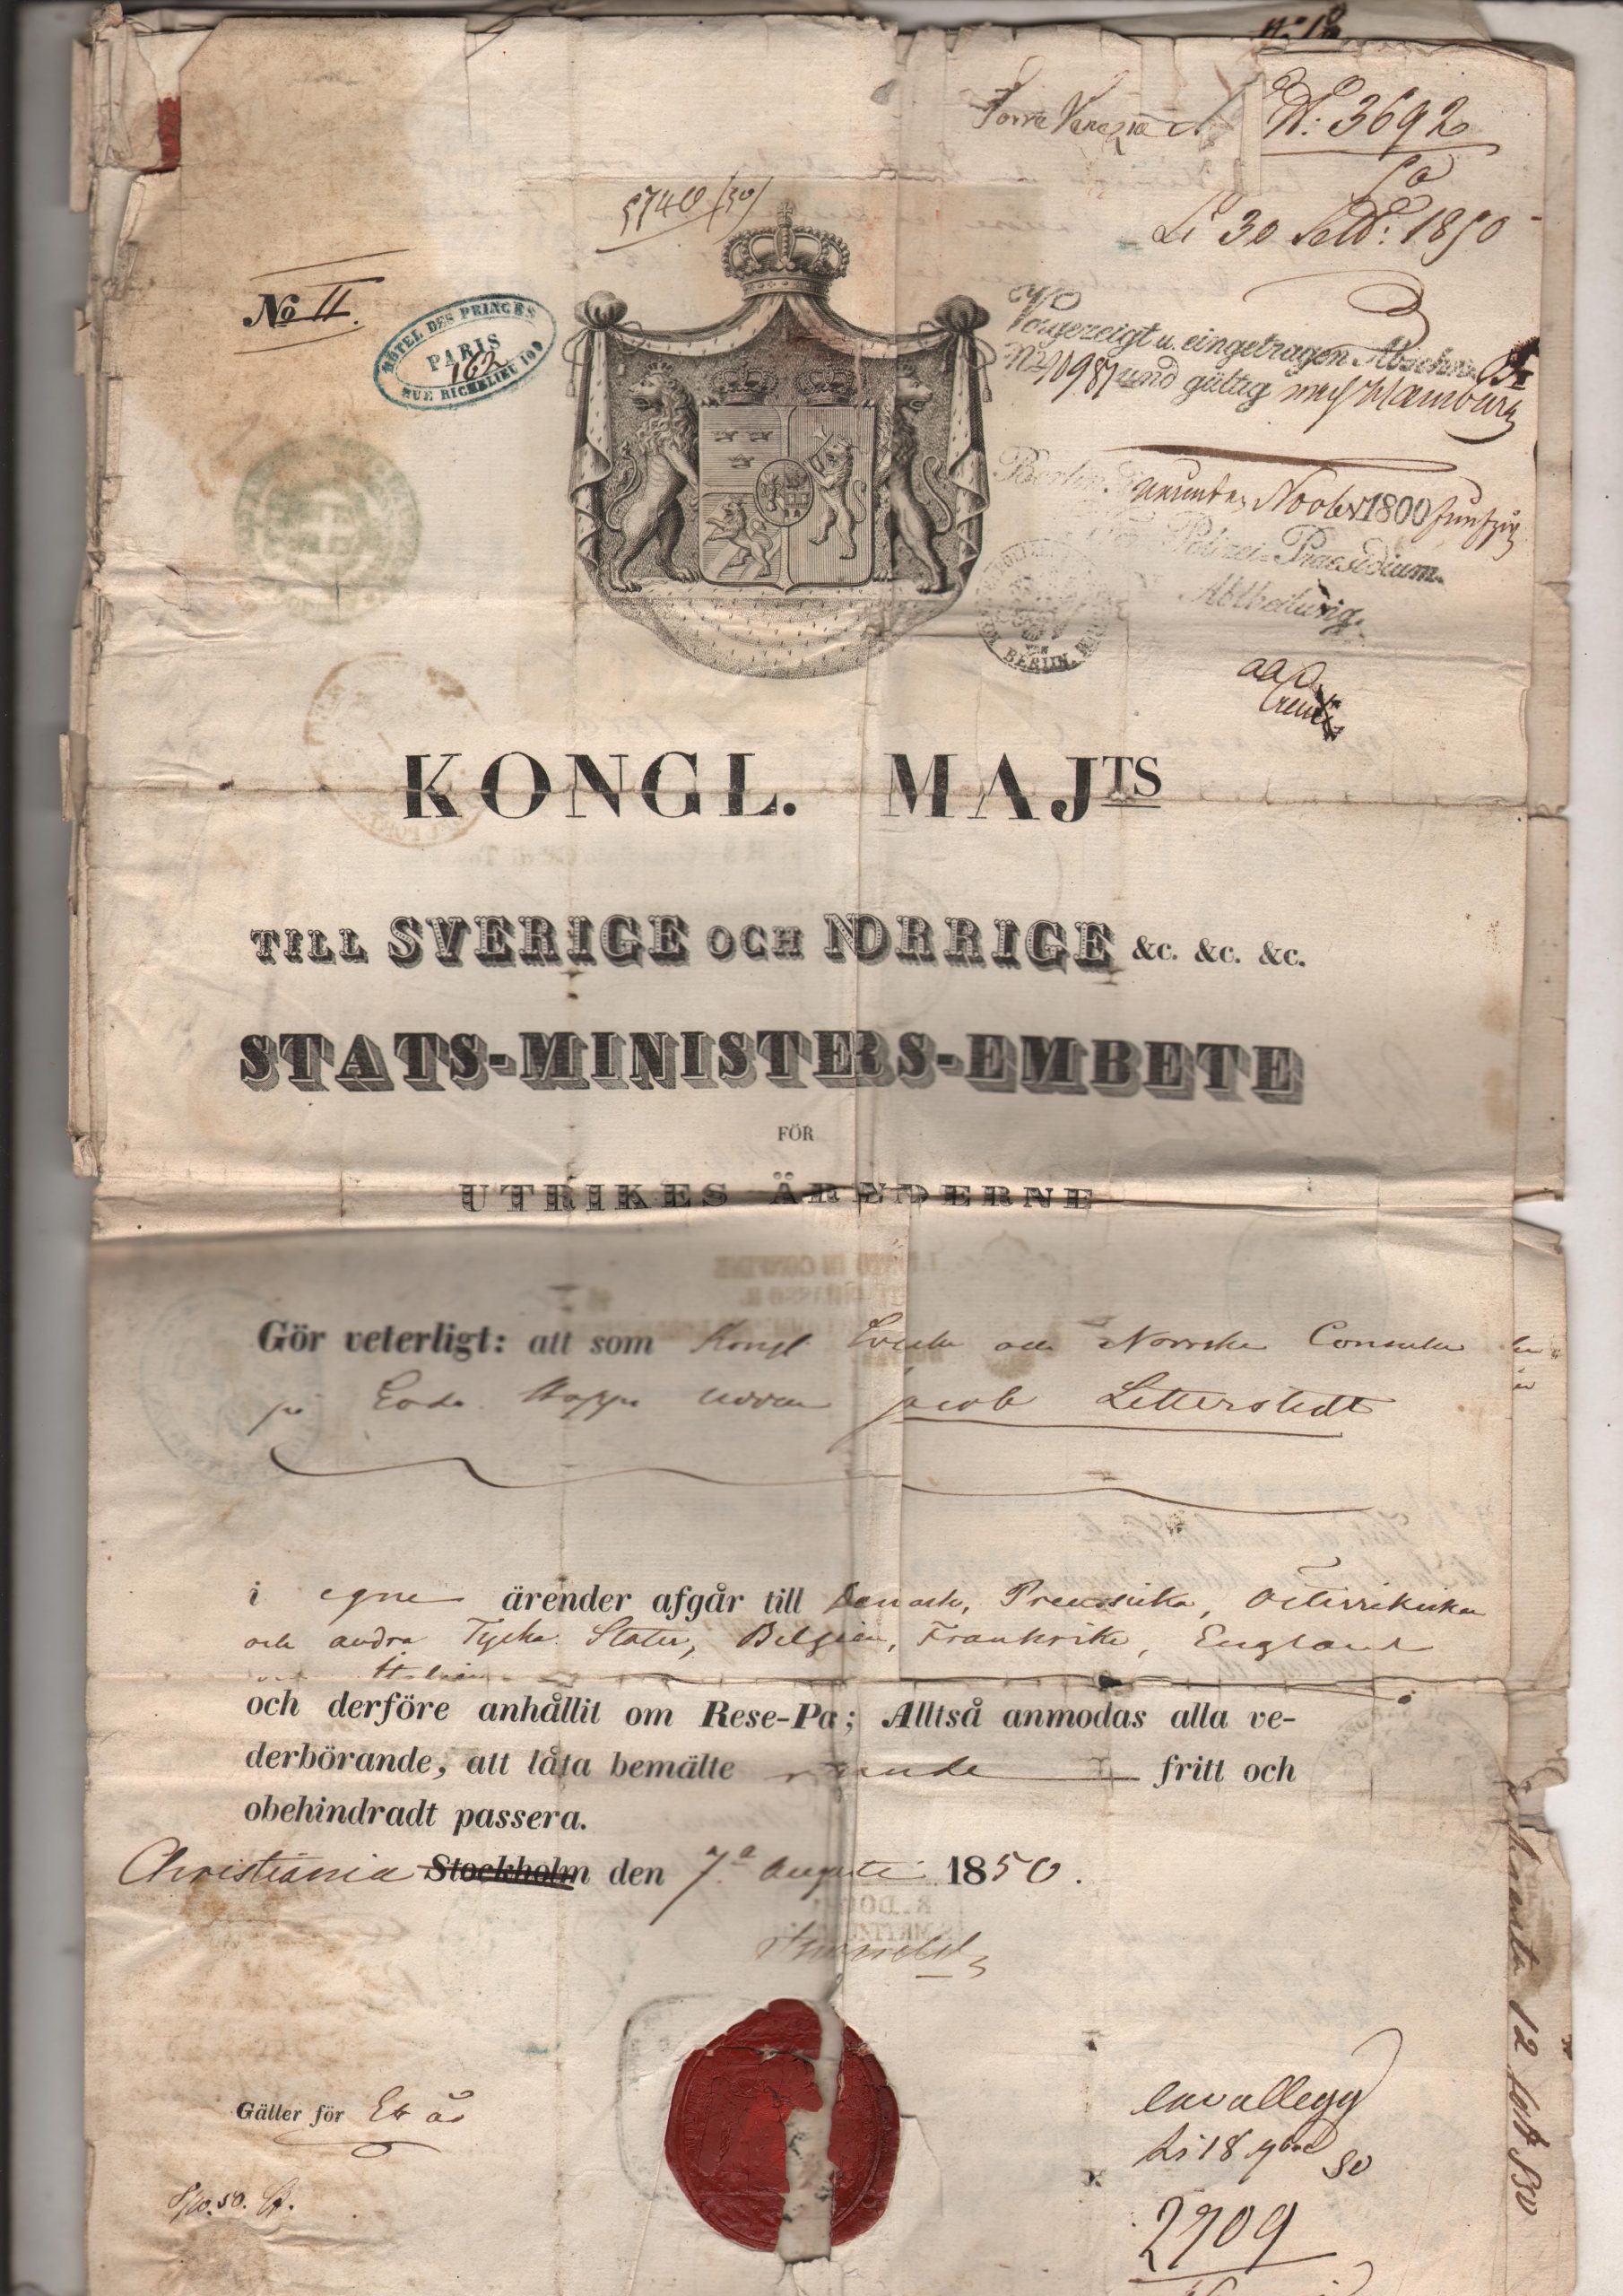 No. 18
Torre Venezia
N: 3692
Li 30 Sett: 1850
5740/50
No 11.
HÔTEL DES PRINCES
PARIS
162
RUE RICHELIEU 109
Vorgezeigt u. eingetragen Abschn.
und gültig nach Hamburg
Berlin, Novbr 1800 fünfzig
Polizei-Praesidium.
Abtheilung.
BERLIN
KONGL. MAJTS
TILL SVERIGE OCH NORRIGE &c. &c. &c.
STATS-MINISTERS-EMBETE
FÖR
UTRIKES ÄRENDERNE
Gör veterligt: att som Kongl Svenska och Norrska Consuln
på Goda Hopps Udden Jacob Letterstedt
i egne ärender afgår till Danmark, Preussiska, Österrikiska
och andra Tyska Stater, Belgien, Frankrike, England
och Italien
och derföre anhållit om Rese-Pa; Alltså anmodas alla ve-
derbörande, att låta bemälte fritt och
obehindradt passera.
Christiania Stockholm den 7.a Augusti 1850.
Gäller för Ett år
Li 18 9bre 50
2709
12 50